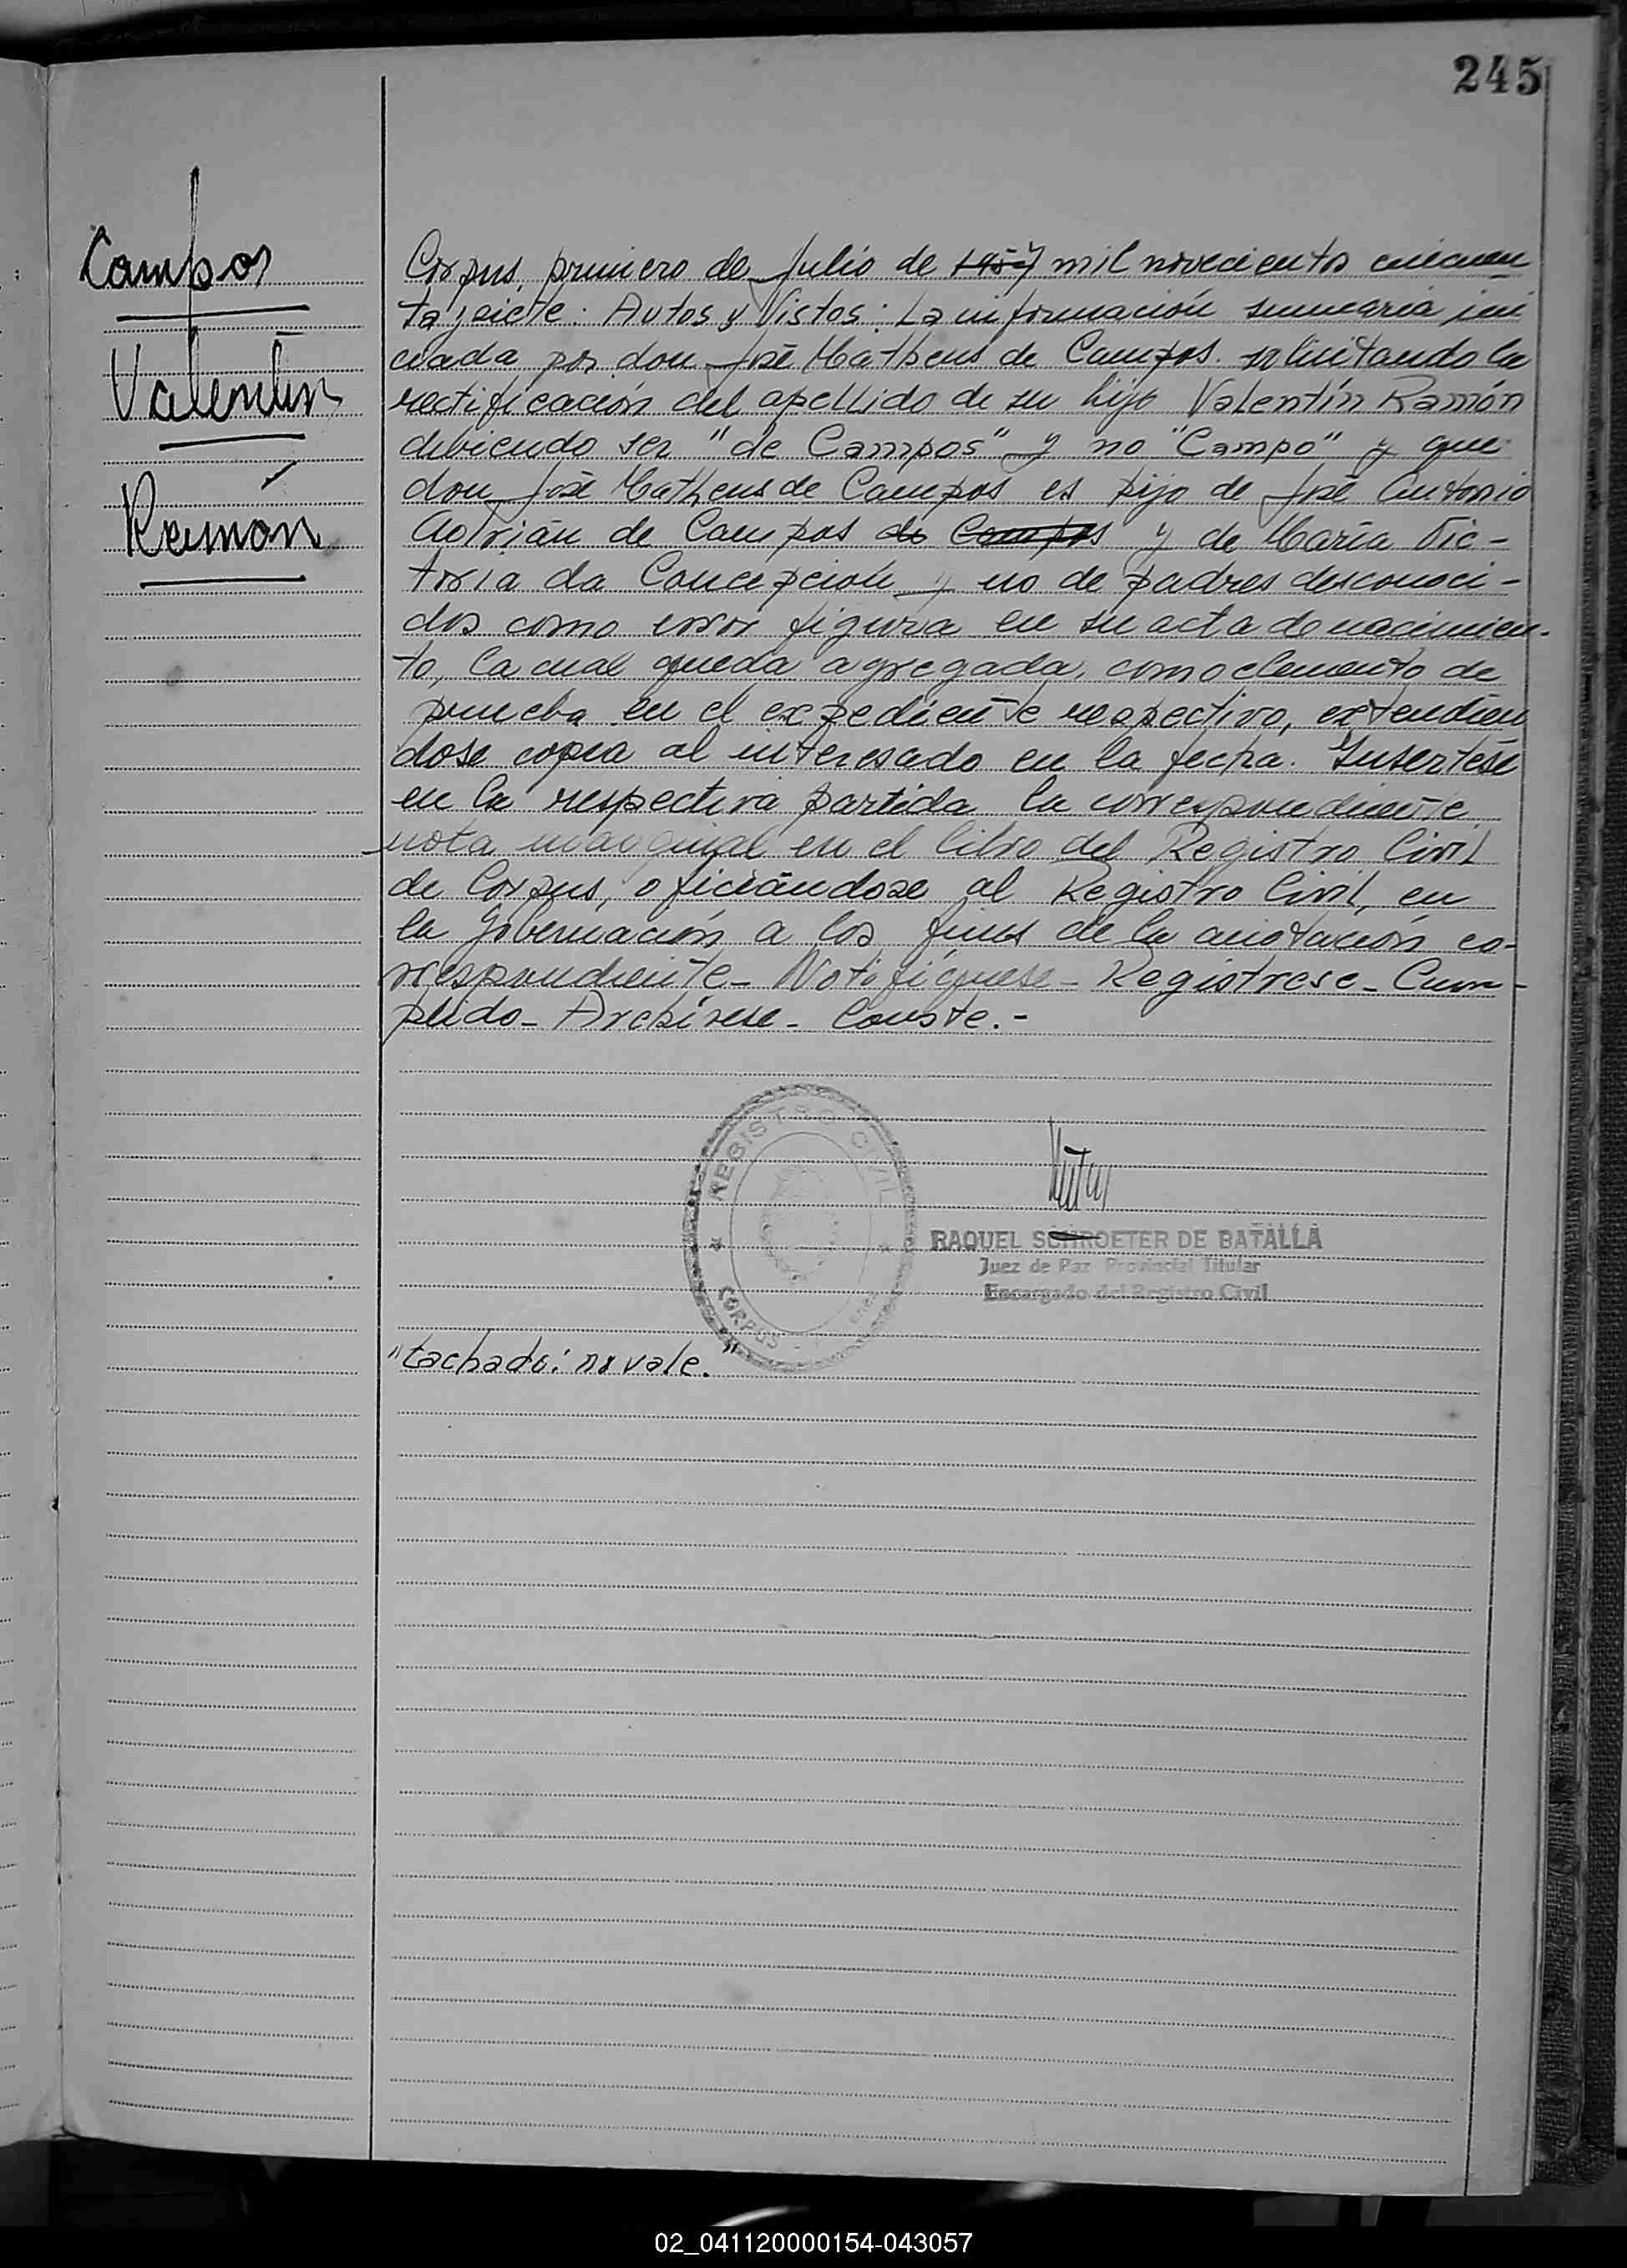 245
Campos
Valentín
Ramón
Corpus, primero de Julio de 1957 mil novecientos cincuen
ta y siete: Autos y Vistos: La información sumaria ini
ciada por don José Matheus de Campos. solicitando la
rectificación del apellido de su hijo Valentín Ramón
debiendo ser "de Campos" y no "Campo" y que
don José Matheus de Campos es hijo de José Antonio
Adrián de Campos de Campos y de María Vic-
toria da Concepción y no de padres desconoci-
dos como error figura en su acta de nacimien-
to, la cual queda agregada, como elemento de
prueba en el expediente respectivo, extendién
dose copia al interesado en la fecha. Insertése
en la respectiva partida la correspondiente
nota marginal en el libro del Registro Civil
de Corpus, oficiándose al Registro Civil, en
la Gobernación a los fines de la anotación co-
rrespondiente- Notifíquese- Registrese- Cum-
plido- Archívese- Conste.-
REGISTRO CIVIL
CORPUS
RAQUEL SCHROETER DE BATALLA
Juez de Paz Provincial Titular
Encargado del Registro Civil
"tachado: no vale."
02_041120000154-043057